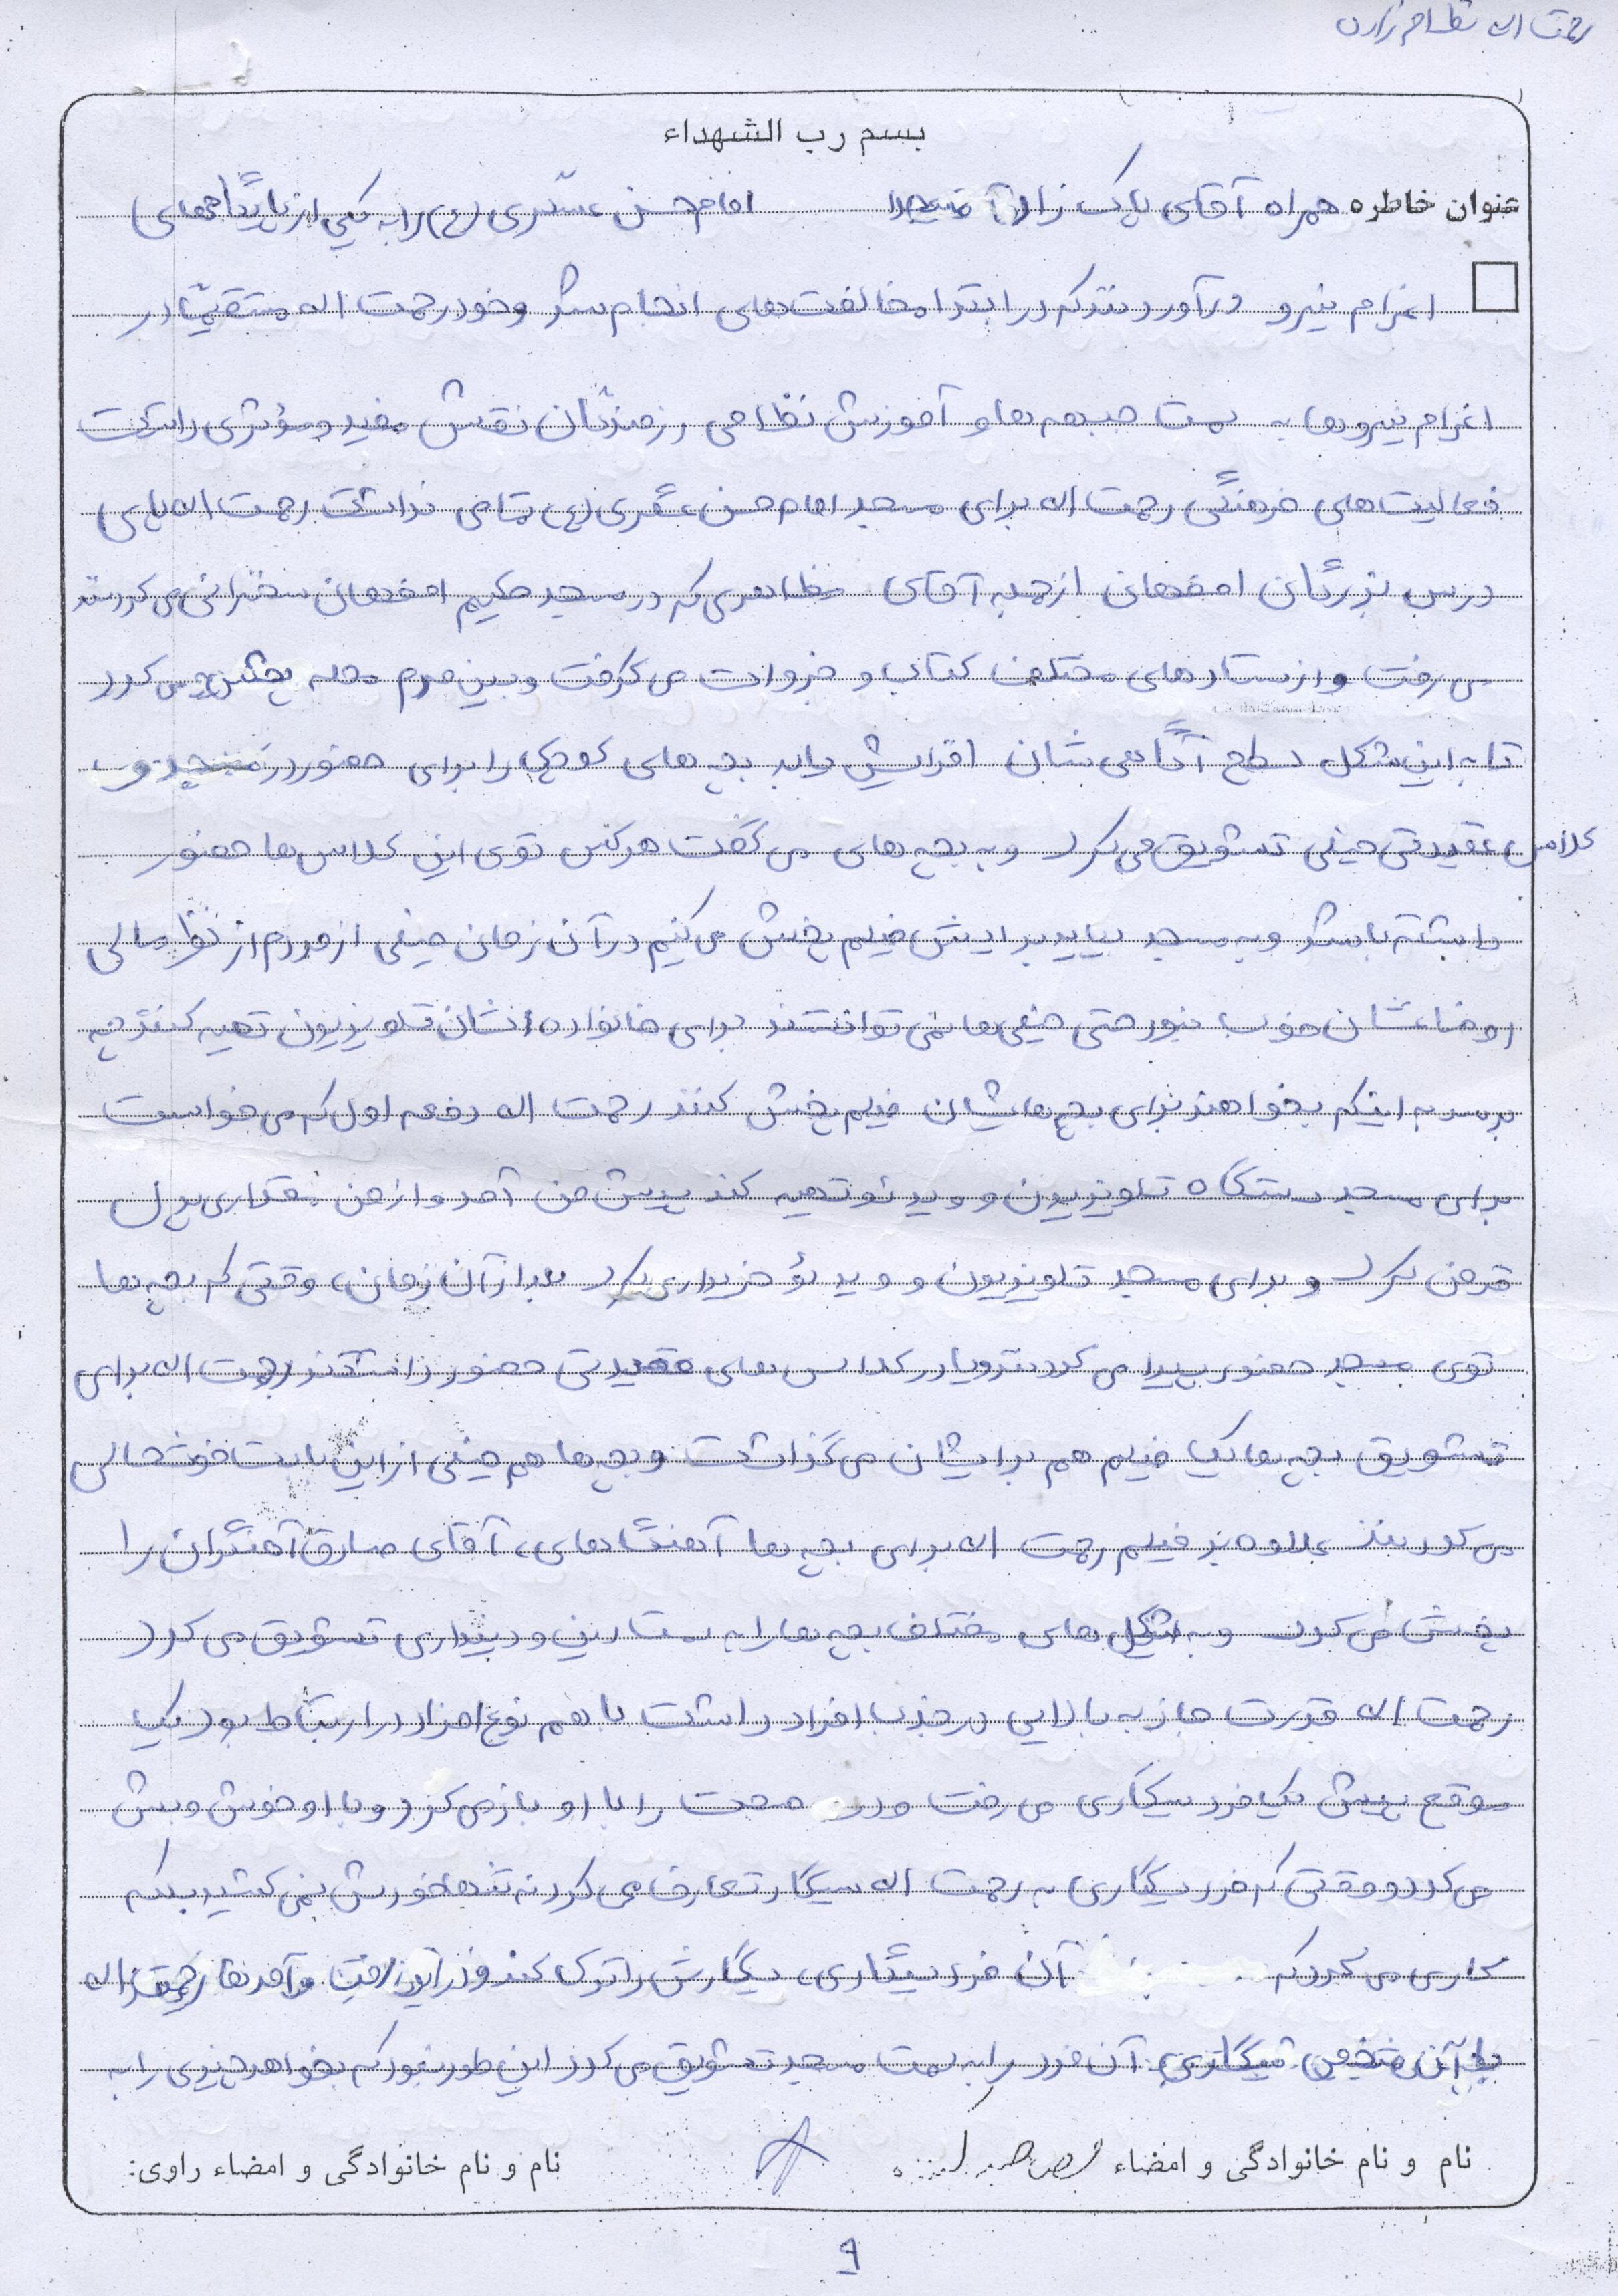 رحمت اله نظام زاده
بسم رب الشهداء
عنوان خاطره همراه آقای پاک نژاد آ مسجد امام حسن عسکری (ع) را به یکی از پایگاههای
اعزام نیرو درآوردند که در ابتدا مخالفت های انجام شد و خود رحمت اله مستقیما در
اعزام نیروها به سمت جبهه ها و آموزش نظامی رزمندگان نقش مفید و موثری داشت
فعالیت های فرهنگی رحمت اله برای مسجد امام حسن عسگری (ع) تمامی نداشت رحمت اله پای
درس بزرگان اصفهان از جمله آقای مظاهری که در مسجد حکیم اصفهان سخنرانی می کردند
می رفت و از ستادهای مختلف کتاب و جزوات می گرفت و بین مردم محله پخش می کرد
تا به این شکل سطح آگاهی شان افزایش یابد بچه های کوچک را برای حضور در مسجد و
کلاس عقیدتی خیلی تشویق می کرد و به بچه های می گفت هرکس توی این کلاس ها حضور
داشته باشد و به مسجد بیاید برایش فیلم پخش می کنیم در آن زمان خیلی از مردم از نظر مالی
اوضاعشان خوب نبود حتی خیلی ها نمی توانستند برای خانواده اشان تلویزیون تهیه کنند چه
برسد به اینکه بخواهند برای بچه هایشان فیلم پخش کنند رحمت اله دفعه اول که می خواست
برای مسجد دستگاه تلویزیون و ویدئو تهیه کند پیش من آمد و از من مقداری پول
قرض کرد و برای مسجد تلویزیون و ویدئو خریداری کرد بعد از آن زمان، وقتی که بچه ها
توی مسجد حضور پیدا می کردند و یا در کلاس های عقیدتی حضور داشتند رحمت اله برای
تشویق بچه ها یک فیلم هم برایشان می گذاشت و بچه ها هم خیلی از این بابت خوشحالی
می کردند علاوه بر فیلم رحمت اله برای بچه ها آهنگ های، آقای صادق آهنگران را
پخش می کرد و به شکل های مختلف بچه ها را به سمت دین و دینداری تشویق می کرد
رحمت اله قدرت جاذبه بالایی در جذب افراد داشت با هم نوع افراد در ارتباط بود یک
موقع پیش یک فرد سیگاری می رفت و در صحبت را با او باز می کرد و با او خوش و بش
می کرد و وقتی که فرد سیگاری به رحمت اله سیگار تعارف می کرد نه تنها خودش نمی کشید بلکه
کاری می کرد که آن فرد سیگاری، سیگارش را ترک کند و در این رفت و آمدها رحمت اله
با آن شخص سیگاری آن فرد را به سمت مسجد تشویق می کرد این طور نبود که بخواهد چیزی را به
نام و نام خانوادگی و امضاء
نام و نام خانوادگی و امضاء راوی:
۹